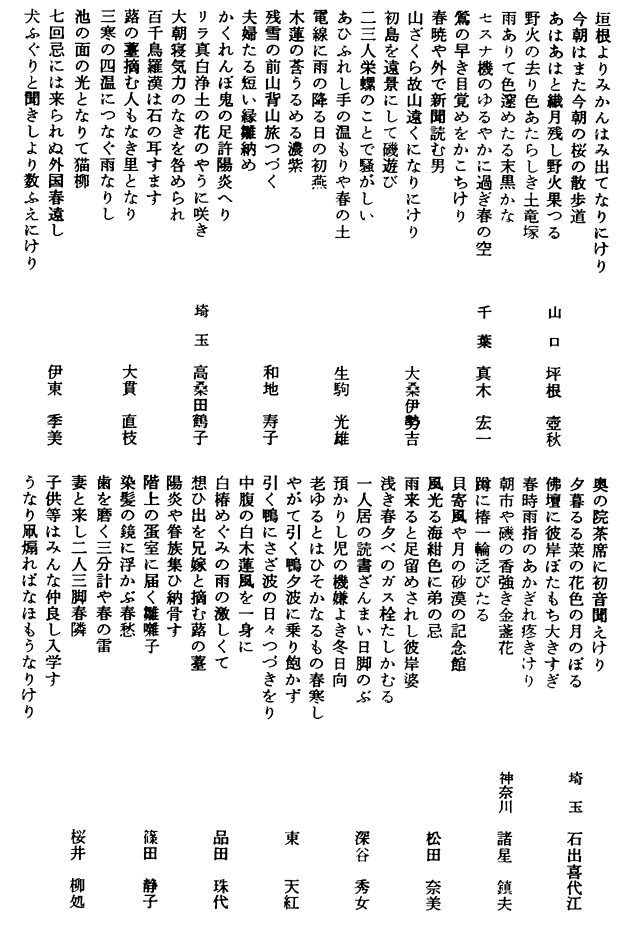 垣根よりみかんはみ出てなりにけり
今朝はまた今朝の桜の散歩道
あはあはと繊月残し野火果つる
山口 坪根 壺秋
野火の去り色あたらしき土竜塚
雨ありて色深めたる末黒かな
セスナ機のゆるやかに過ぎ春の空
千葉 真木 宏一
鶯の早き目覚めをかこちけり
春暁や外で新聞読む男
山ざくら故山遠くになりにけり
大桑伊勢吉
初島を遠景にして磯遊び
二三人栄螺のことで騒がしい
あひふれし手の温もりや春の土
生駒 光雄
電線に雨の降る日の初燕
木蓮の莟うるめる濃紫
残雪の前山背山旅つづく
和地 寿子
夫婦たる短い縁雛納め
かくれんぼ鬼の足許陽炎へり
リラ真白浄土の花のやうに咲き
埼玉 高桑田鶴子
大朝寝気力のなきを咎められ
百千鳥羅漢は石の耳すます
蕗の薹摘む人もなき里となり
大貫 直枝
三寒の四温につなぐ雨なりし
池の面の光となりて猫柳
七回忌には来られぬ外国春遠し
伊東 季美
犬ふぐりと聞きしより数ふえにけり
奥の院茶席に初音聞えけり
夕暮るる菜の花色の月のぼる
埼玉 石出喜代江
佛壇に彼岸ぼたもち大きすぎ
春時雨指のあかぎれ疼きけり
朝市や磯の香強き金盞花
神奈川 諸星 鎮夫
蹲に椿一輪泛びたる
貝寄風や月の砂漠の記念館
風光る海紺色に弟の忌
松田 奈美
雨来ると足留めされし彼岸婆
浅き春夕べのガス栓たしかむる
一人居の読書ざんまい日脚のぶ
深谷 秀女
預かりし児の機嫌よき冬日向
老ゆるとはひそかなるもの春寒し
やがて引く鴨夕波に乗り飽かず
東 天紅
引く鴨にさざ波の日々つづきをり
中腹の白木蓮風を一身に
白椿めぐみの雨の激しくて
品田 珠代
想ひ出を兄嫁と摘む蕗の薹
陽炎や眷族集ひ納骨す
階上の蚕室に届く雛囃子
篠田 静子
染髪の鏡に浮かぶ春愁
歯を磨く三分計や春の雷
妻と来し二人三脚春隣
桜井 柳処
子供等はみんな仲良し入学す
うなり凧煽ればなほもうなりけり